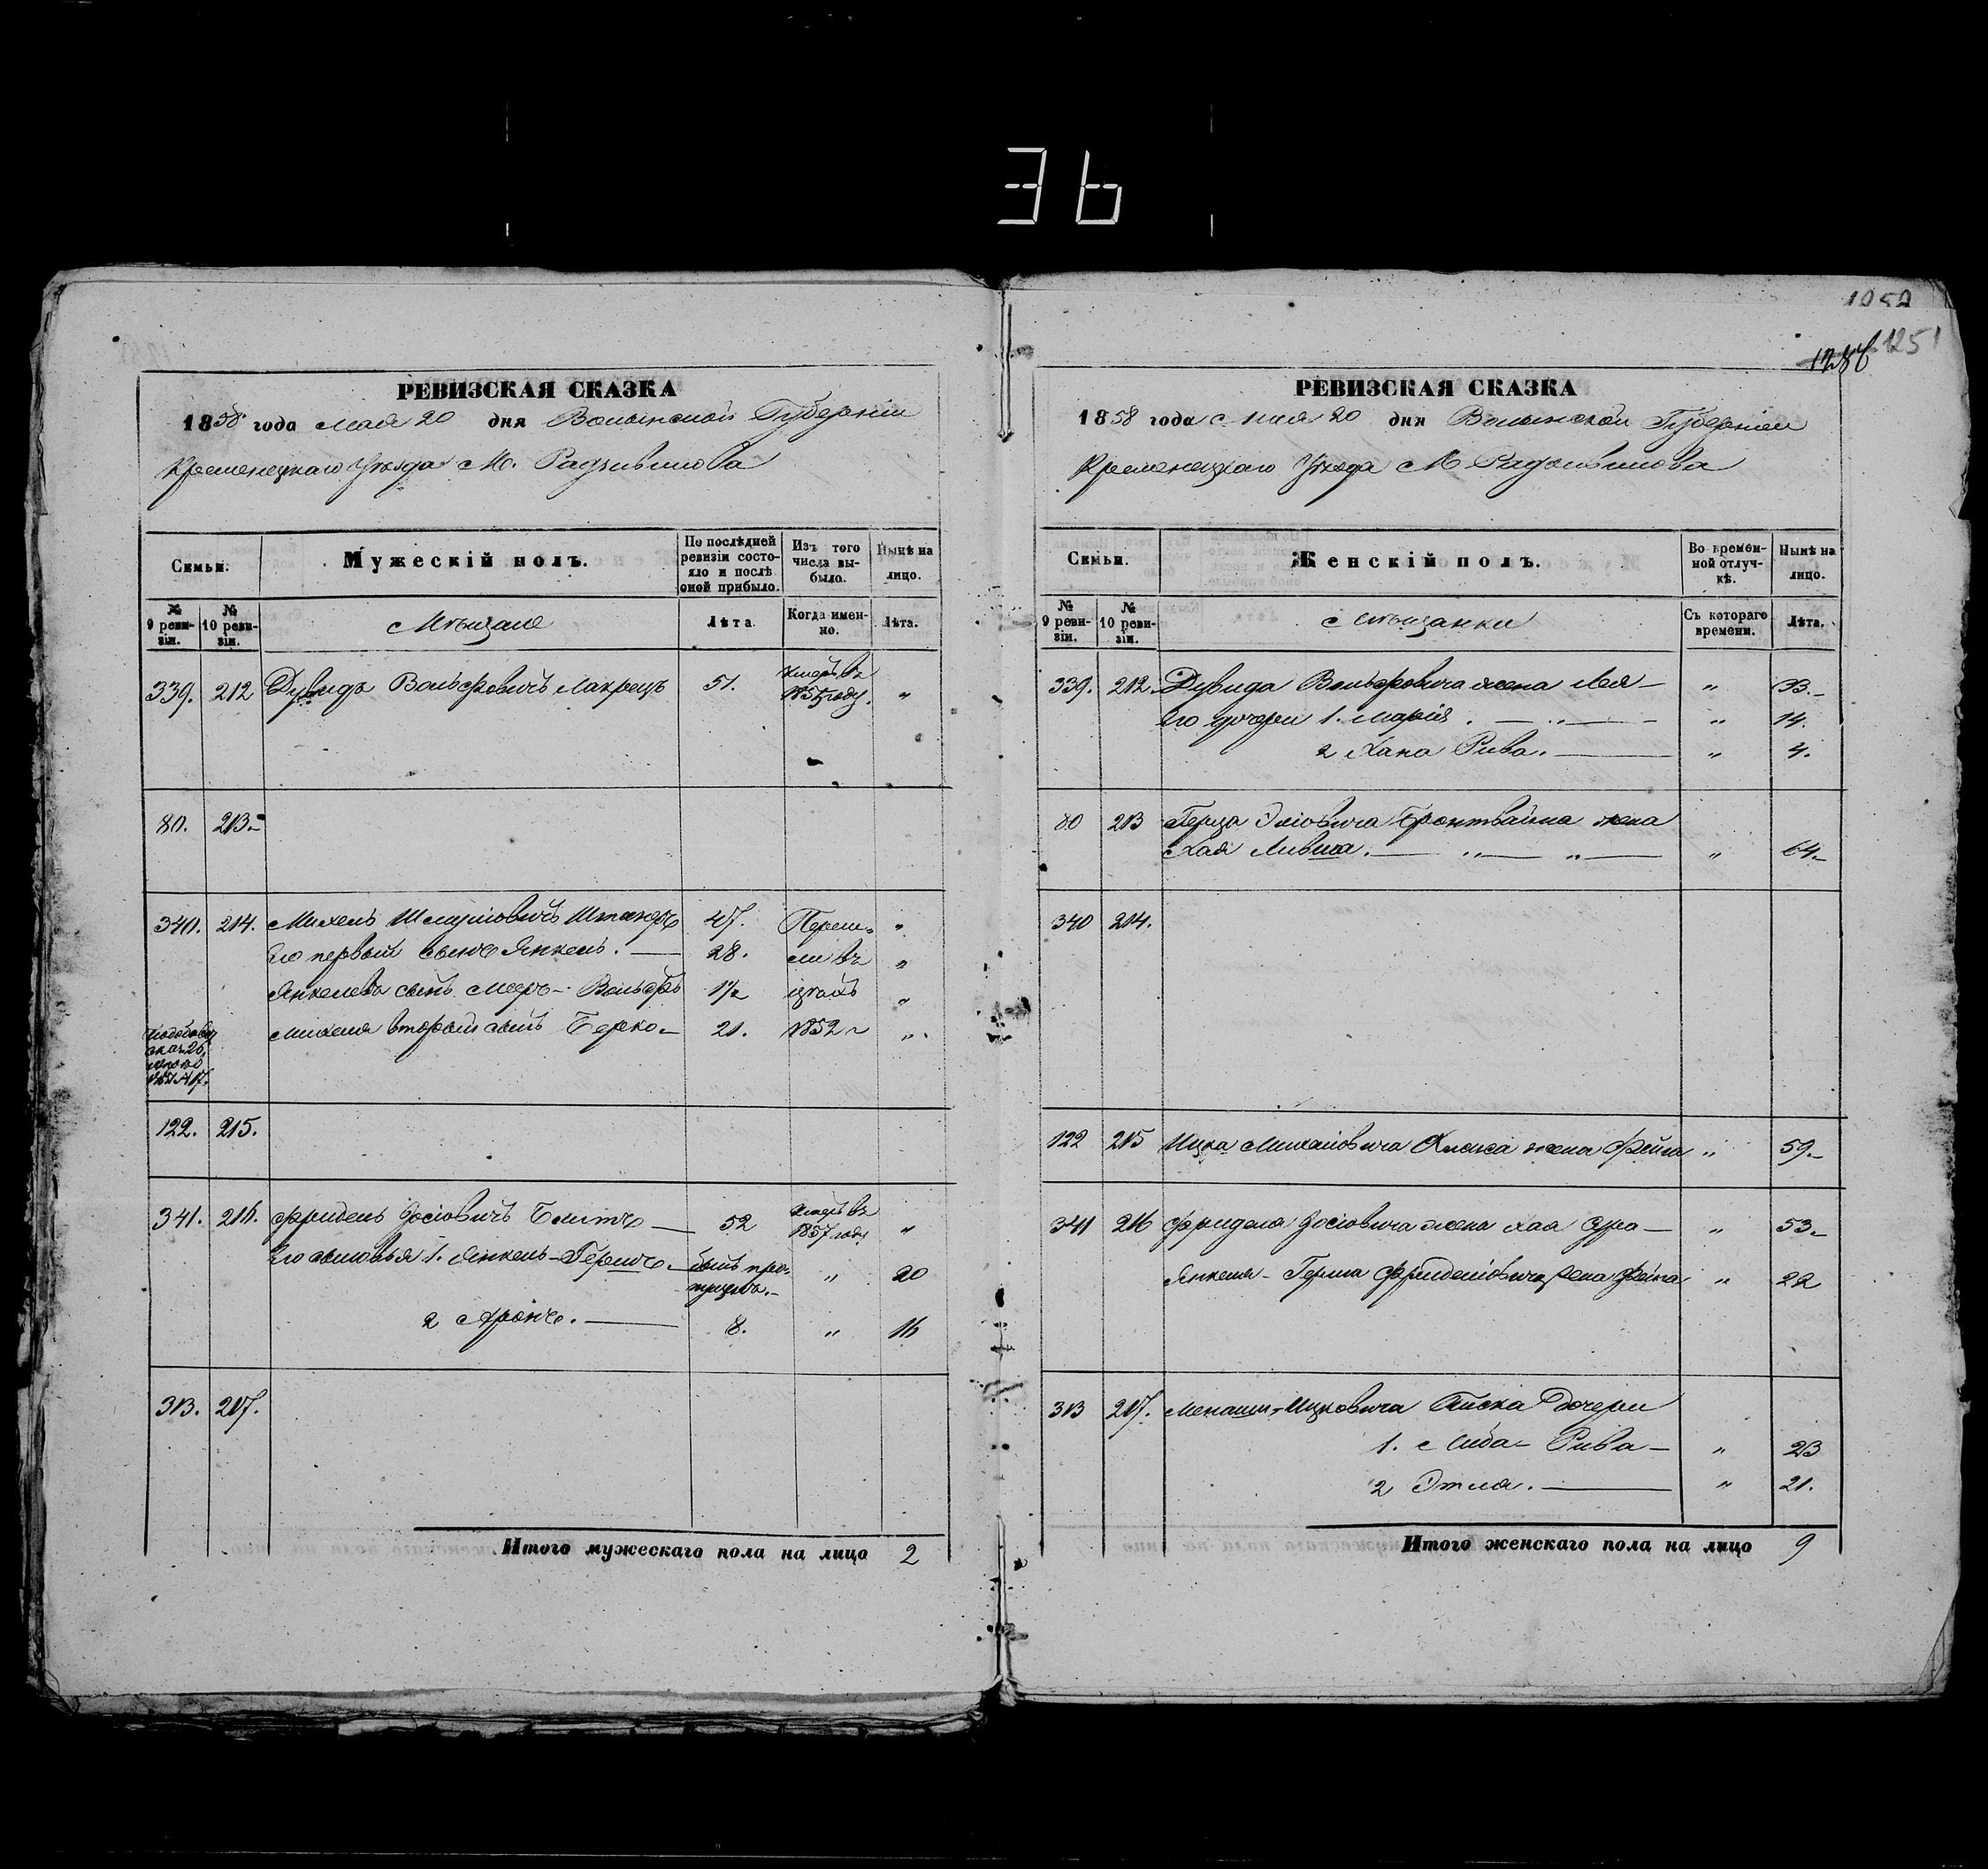 36
1251
РЕВИЗСКАЯ СКАЗКА
1858 года Мая 20 дня Волынской Губерніи
Кременецкаго Уѣзда М. Радзивилова
Семьи.
Мужескій полъ.
По послѣдней ревизіи состояло и послѣ оной прибыло.
Изъ того числа выбыло.
Нынѣ на лицо.
№ 9 ревизіи.
№ 10 ревизіи.
Мѣщане
Лѣта.
Когда именно.
Лѣта.
339. 212 Дувидъ Вольфовичъ 51. умеръ въ "
году.
80. 213.
340. 214. Михель Шмуліовичъ 47. Переш- "
Его первый сынъ Янкель. 28. ли въ "
Янкеля сынъ Мееръ-Вольфъ 1½ "
Михеля второй сынъ Берко 21. 1852 г "
122. 215.
341. 216. Фридель Іосіовичъ 52 умеръ въ 1857 году "
Его сыновья 1. Янкель-Гершъ былъ пропущенъ. " 20
2 Аронъ. 8. " 16
313. 217.
Итого мужескаго пола на лицо 2
РЕВИЗСКАЯ СКАЗКА
1858 года Мая 20 дня Волынской Губерніи
Кременецкаго Уѣзда М. Радзивилова
Семьи.
Женскій полъ.
Во временной отлучкѣ.
Нынѣ на лицо.
№ 9 ревизіи.
№ 10 ревизіи.
Мѣщанки
Съ котораго времени.
Лѣта.
339. 212. Дувида Вольфовича жена Лея " 33.
Его дочери 1. Марія. " 14.
2 Хана Рива. " 4.
80 213 Герца жена
Хая Ливша. " 64.
340 214.
122 215 Ицка Михаліовича жена Фейга " 59.
341 216 Фриделя Іосіовича жена Хая Сура " 53.
Янкеля-Герша Фриделіовича жена Фейга " 22
313 217. Менаши-Ицковича дочери
1. Либа-Рива " 23
2 Этля. " 21.
Итого женскаго пола на лицо 9